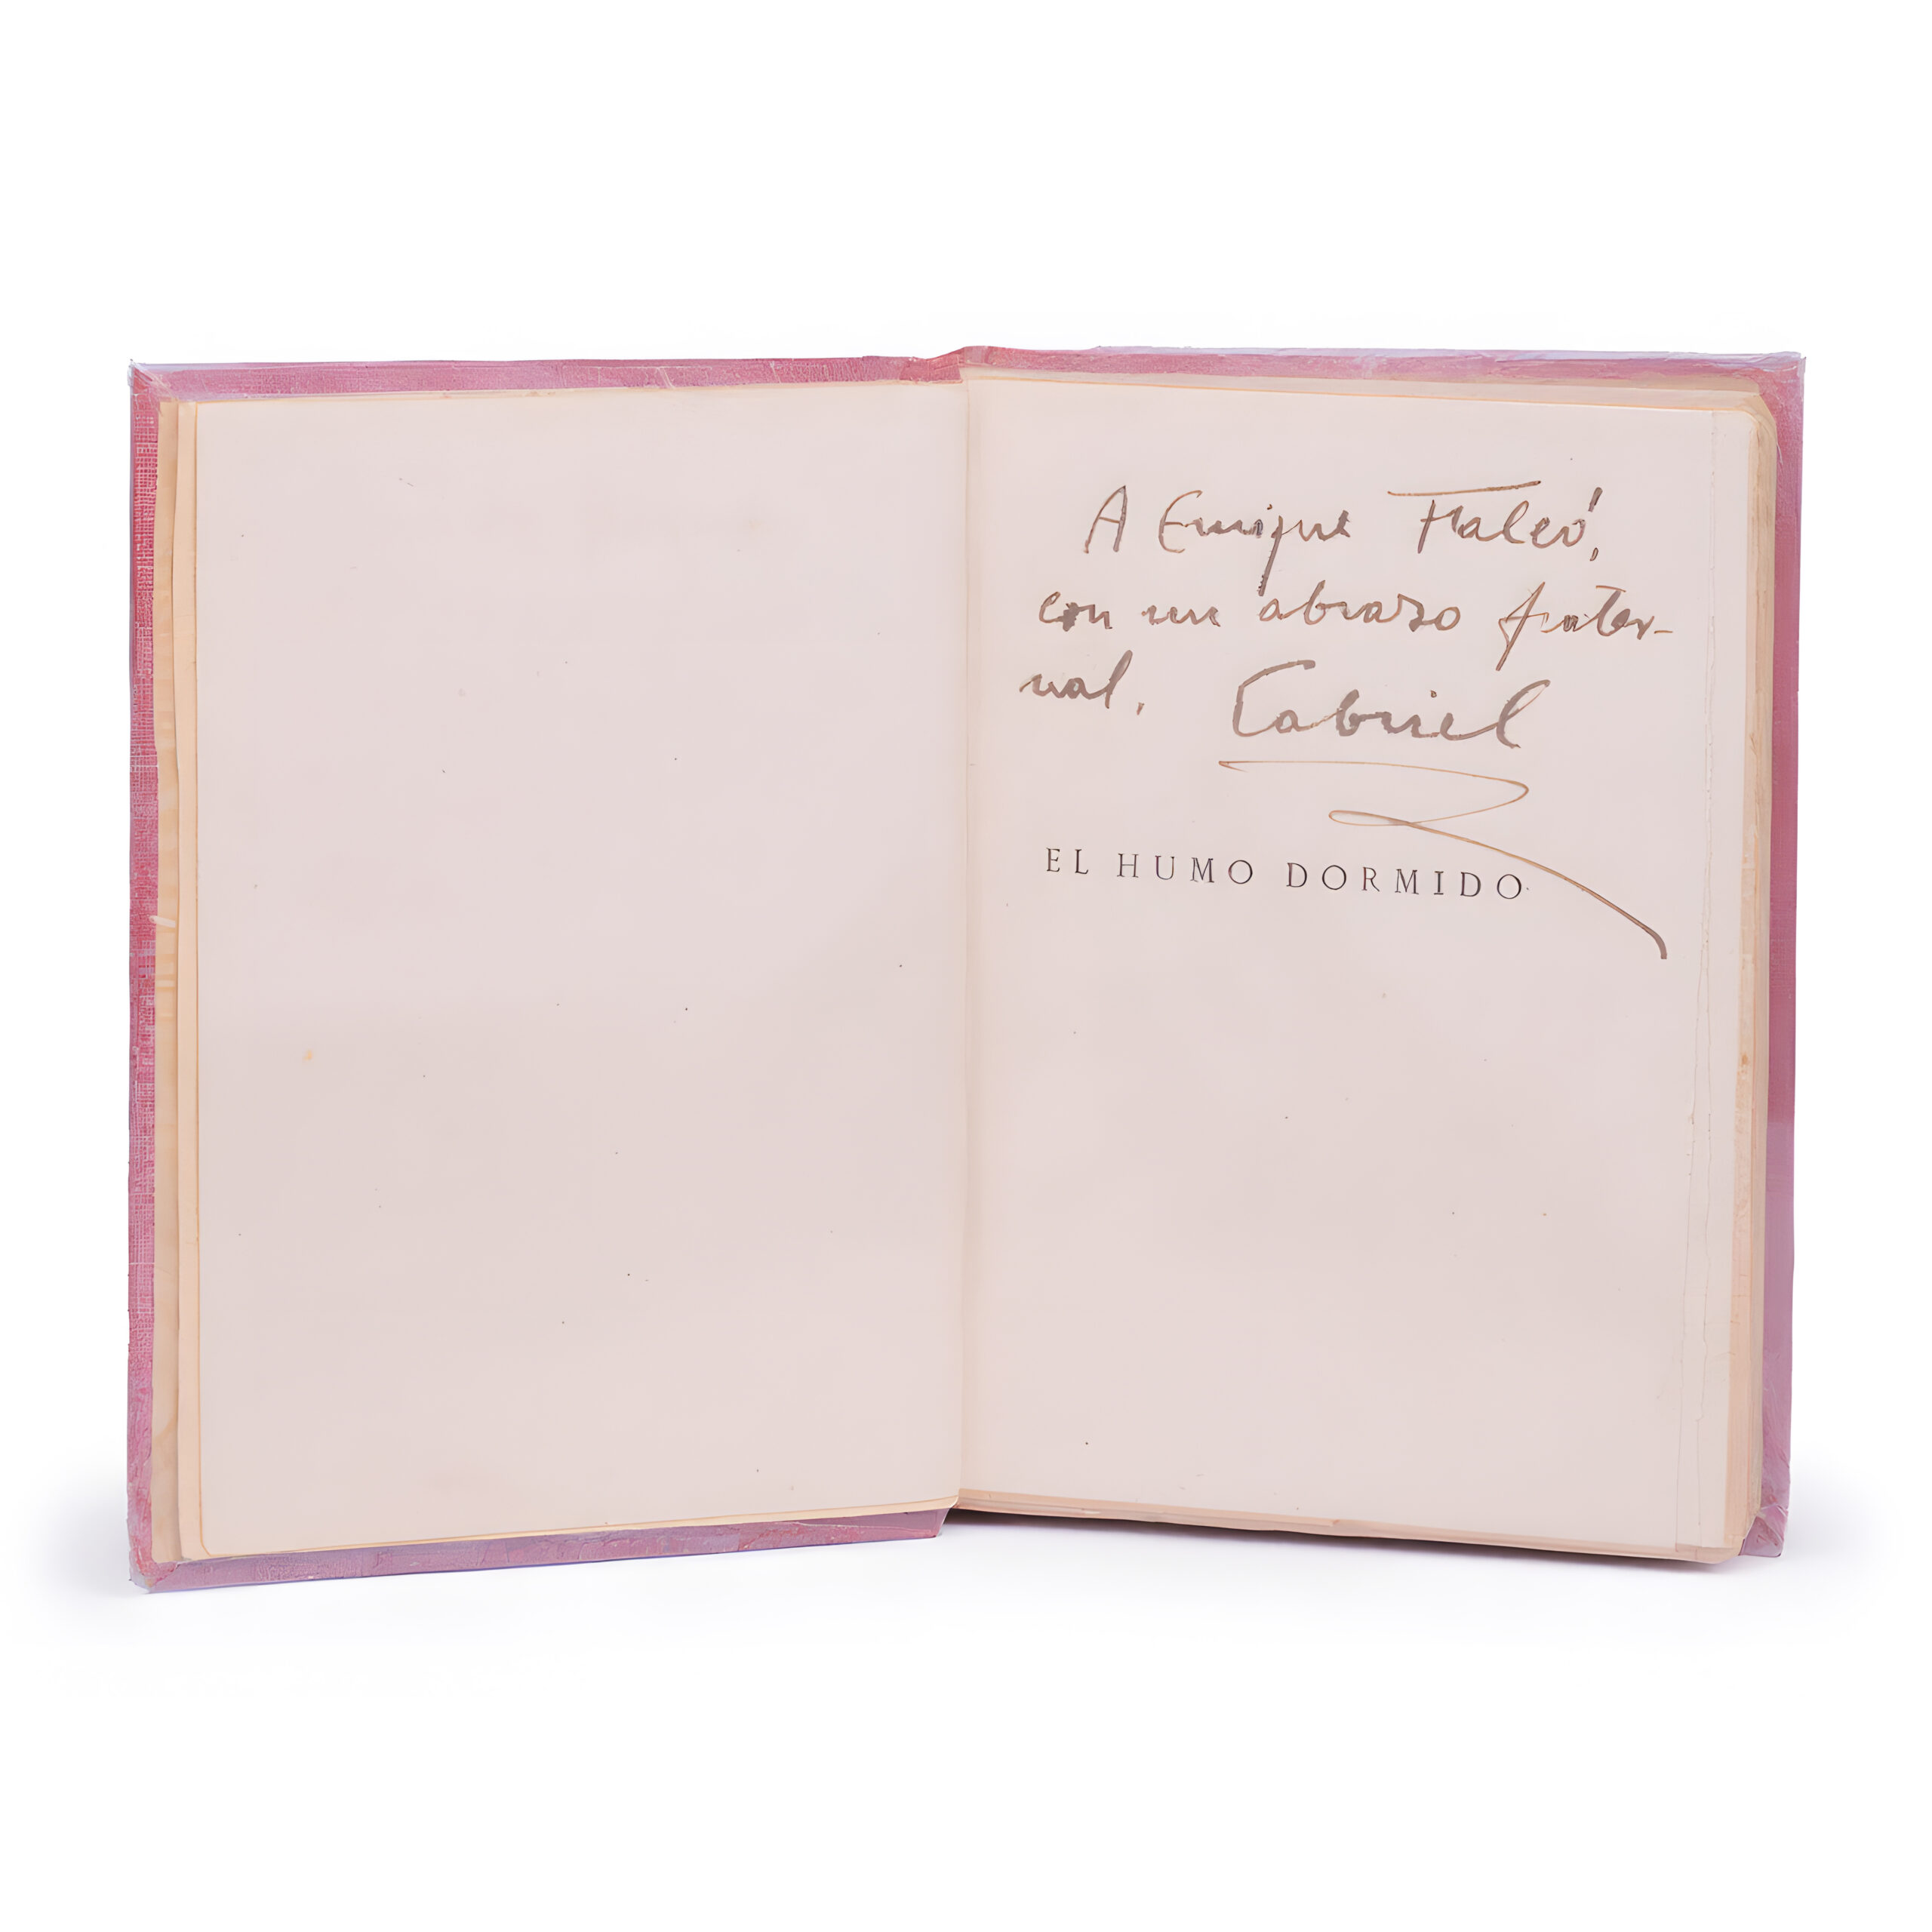 A Enrique Falcó,
con un abrazo frater-
nal. Gabriel
EL HUMO DORMIDO